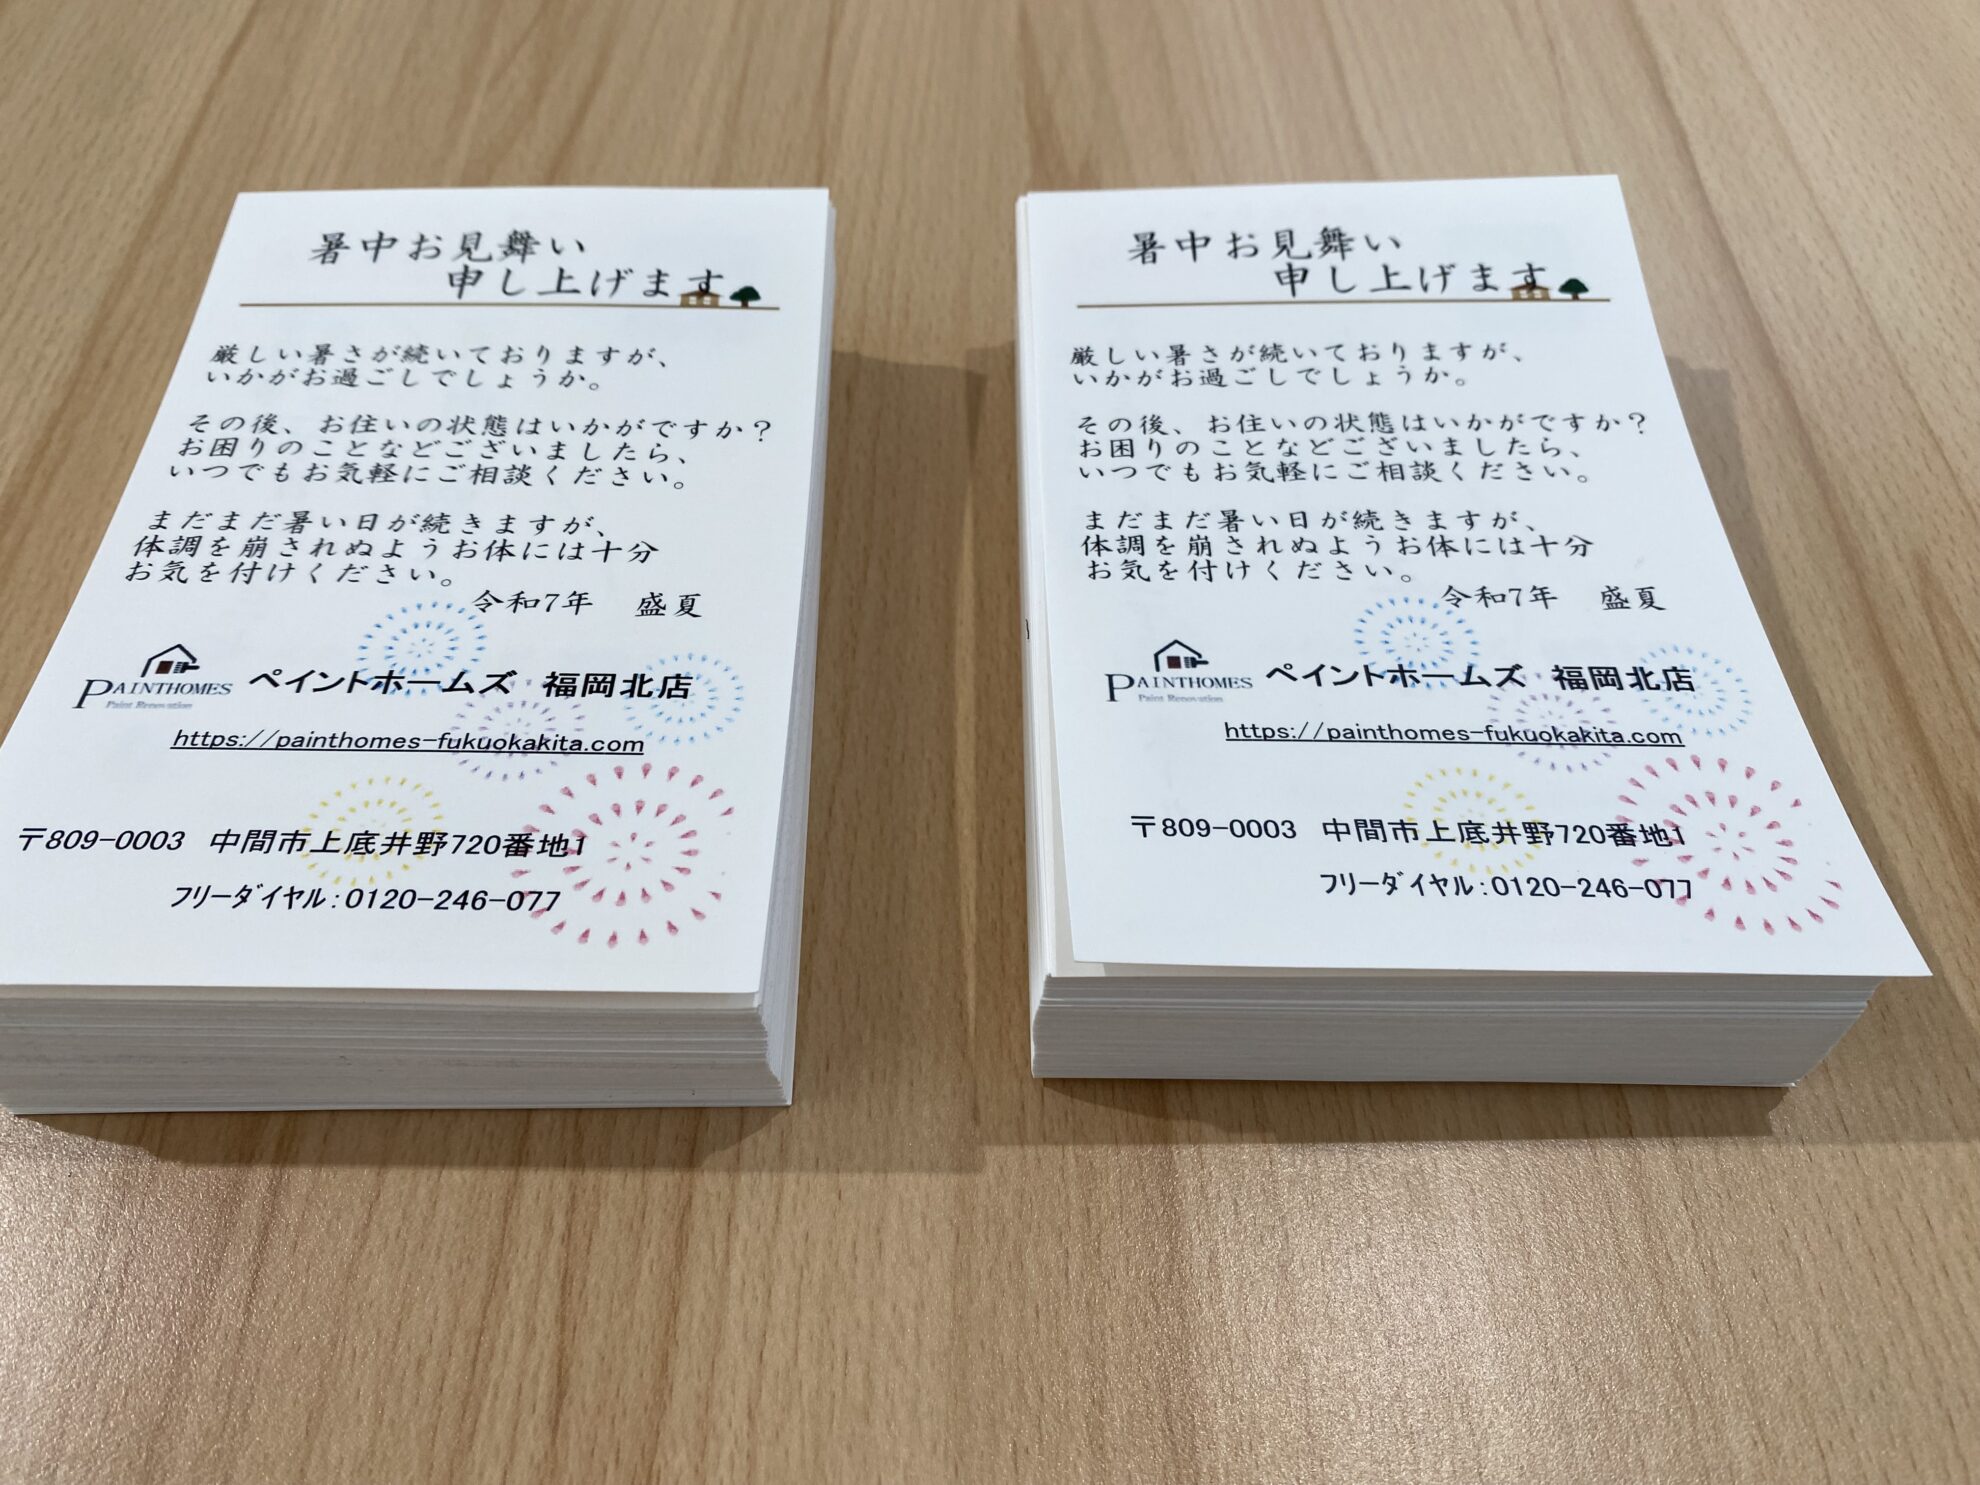 暑中お見舞い
申し上げます
厳しい暑さが続いておりますが、
いかがお過ごしでしょうか。
その後、お住いの状態はいかがですか？
お困りのことなどございましたら、
いつでもお気軽にご相談ください。
まだまだ暑い日が続きますが、
体調を崩されぬようお体には十分
お気を付けください。
令和7年　盛夏
PAINTHOMES
Paint Renovation
ペイントホームズ　福岡北店
https://painthomes-fukuokakita.com
〒809-0003　中間市上底井野720番地1
フリーダイヤル：0120-246-077
暑中お見舞い
申し上げます
厳しい暑さが続いておりますが、
いかがお過ごしでしょうか。
その後、お住いの状態はいかがですか？
お困りのことなどございましたら、
いつでもお気軽にご相談ください。
まだまだ暑い日が続きますが、
体調を崩されぬようお体には十分
お気を付けください。
令和7年　盛夏
PAINTHOMES
Paint Renovation
ペイントホームズ　福岡北店
https://painthomes-fukuokakita.com
〒809-0003　中間市上底井野720番地1
フリーダイヤル：0120-246-077